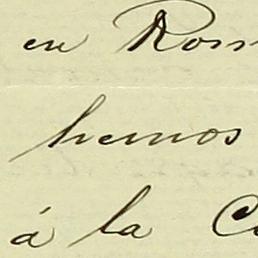 en Rom
hemos
á la C